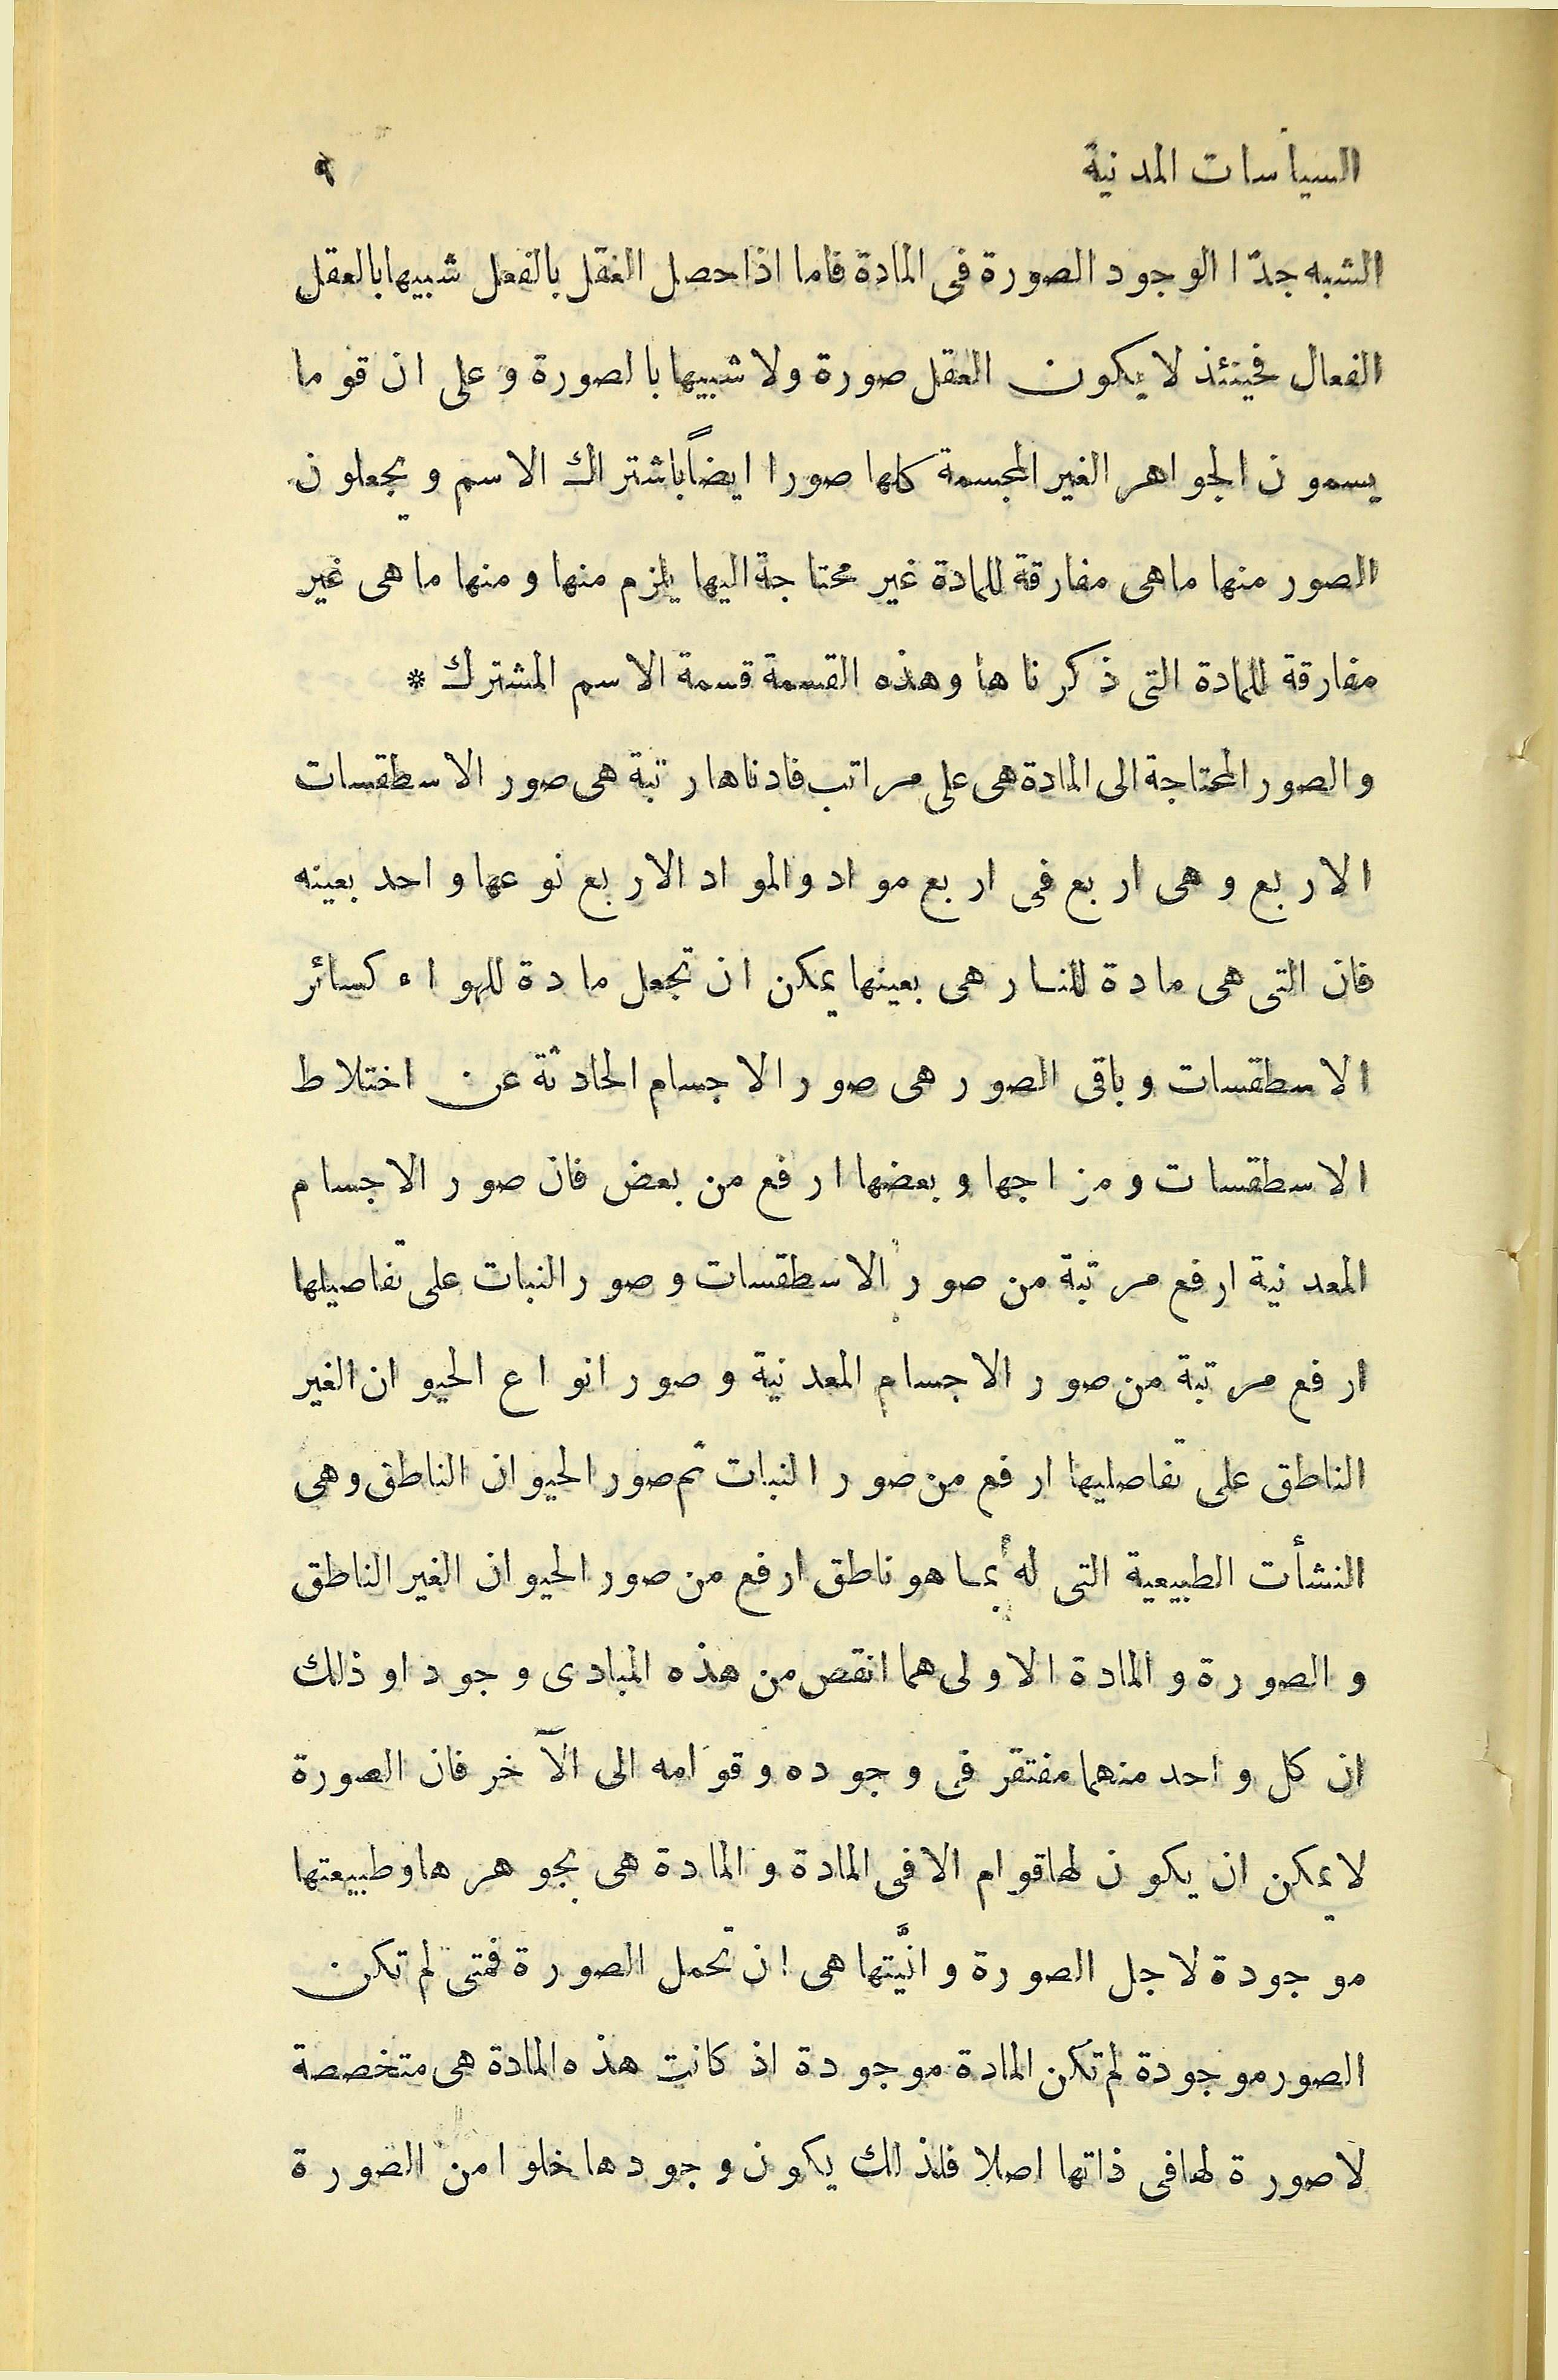 السياسات المدنية ٩
الشبه جدّا الوجود الصورة فى المادة فاما اذا حصل العقل بالفعل شبيها بالعقل
الفعال فحينئذ لا يكون العقل صورة ولا شبيها بالصورة و على ان قوما
يسمون الجواهر الغير المجسمة كلها صورا ايضاً باشتراك الاسم ويجعلون
الصور منها ما هى مفارقة للمادة غير محتاجة اليها يلزم منها ومنها ما هى غير
مفارقة للمادة التى ذكرناها وهذه القسمة قسمة الاسم المشترك *
والصور المحتاجة الى المادة هى على مراتب فادناها رتبة هى صور الاسطقسات
الاربع وهى اربع فى اربع مواد والمواد الاربع نوعها واحد بعينه
فان التى هى مادة للنار هى بعينها يمكن ان تجعل مادة للهواء كسائر
الاسطقسات وباقى الصور هى صور الاجسام الحادثة عن اختلاط
الاسطقسات ومزاجها وبعضها ارفع من بعض فان صور الاجسام
المعدنية ارفع مرتبة من صور الاسطقسات وصور النبات على تفاصيلها
ارفع مرتبة من صور الاجسام المعدنية وصور انواع الحيوان الغير
الناطق على تفاصليها ارفع من صور النبات ثم صور الحيوان الناطق وهى
النشأت الطبيعية التى له بما هو ناطق ارفع من صور الحيوان الغير الناطق
والصورة والمادة الاولى هما انقص من هذه المبادى وجودا وذلك
ان كل واحد منهما مفتقر فى وجوده وقوامه الى الآخر فان الصورة
لا يمكن ان يكون لها قوام الا فى المادة والمادة هى بجوهرها وطبيعتها
موجودة لاجل الصورة وانّيتها هى ان تحمل الصورة فمتى لم تكن
الصور موجودة لم تكن المادة موجودة اذ كانت هذه المادة هى متخصصة
لا صورة لها فى ذاتها اصلا فلذلك يكون وجودها خلوا من الصورة